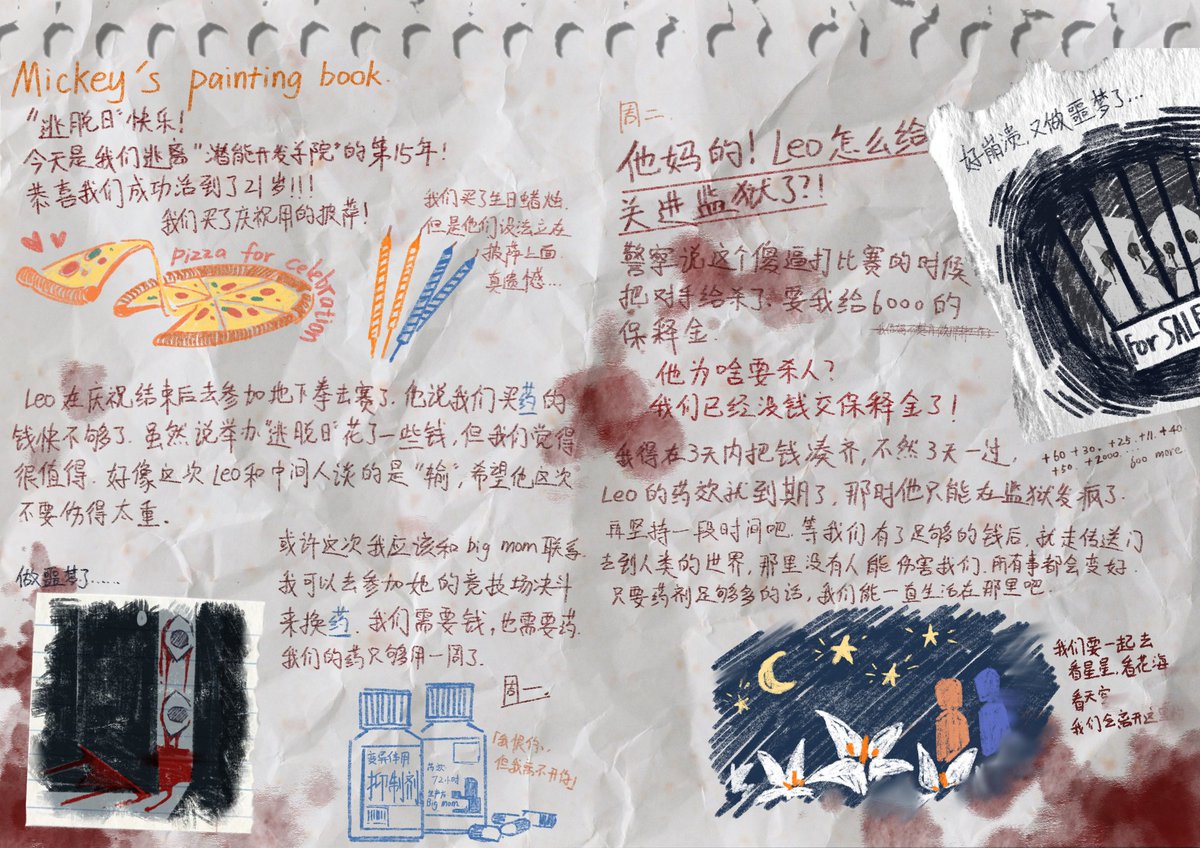 Mickey's painting book.
"逃脱日"快乐!
今天是我们逃离"潜能开发学院"的第15年!
恭喜我们成功活到了21岁!!!
我们买了庆祝用的披萨!
pizza for celebration
我们买了生日蜡烛.
但是他们没法立在
披萨上面.
真遗憾...
Leo在庆祝结束后去参加地下拳击赛了.他说我们买药的
钱快不够了.虽然说举办"逃脱日"花了一些钱,但我们觉得
很值得.好像这次Leo和中间人谈的是"输",希望他这次
不要伤得太重.
或许这次我应该和big mom联系.
我可以去参加她的竞技场决斗
来换药.我们需要钱,也需要药.
我们的药只够用一周了.
做噩梦了......
周一.
变异作用
抑制剂
药效
72小时
生产者
Big mom
「我恨你,
但我离不开你」
周二
他妈的!Leo怎么给
关进监狱了?!
警察说这个傻逼打比赛的时候
把对手给杀了.要我给6000的
保释金.
他为啥要杀人?
我们已经没钱交保释金了!
我得在3天内把钱凑齐,不然3天一过,
Leo的药效就到期了,那时他只能在监狱发疯了.
+60+30,+25.+11.+40.
+50.+2000....600 more
再坚持一段时间吧.等我们有了足够的钱后,就走传送门
去到人类的世界,那里没有人能伤害我们.所有事都会变好.
只要药剂足够多的话,我们能一直生活在那里吧.
好崩溃,又做噩梦了...
For SALE
我们要一起去
看星星,看花海
看天空
我们会离开这里